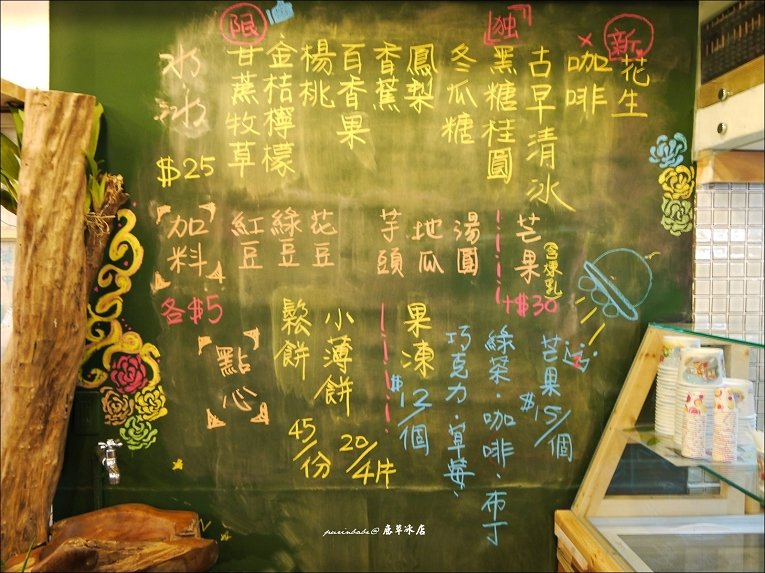 新
花生
咖啡
古早清冰
独
黑糖桂圓
冬瓜糖
鳳梨
香蕉
百香果
楊桃
金桔檸檬
限
甘蔗牧草
水冰
$25
芒果
含煉乳
+$30
湯圓
地瓜
芋頭
花豆
綠豆
紅豆
加料
各$5
芒果
$15/個
綠茶·咖啡·布丁
巧克力·草莓·
果凍
$12/個
小薄餅
20/4片
鬆餅
45/份
點心
purinbabe@鹿草冰店